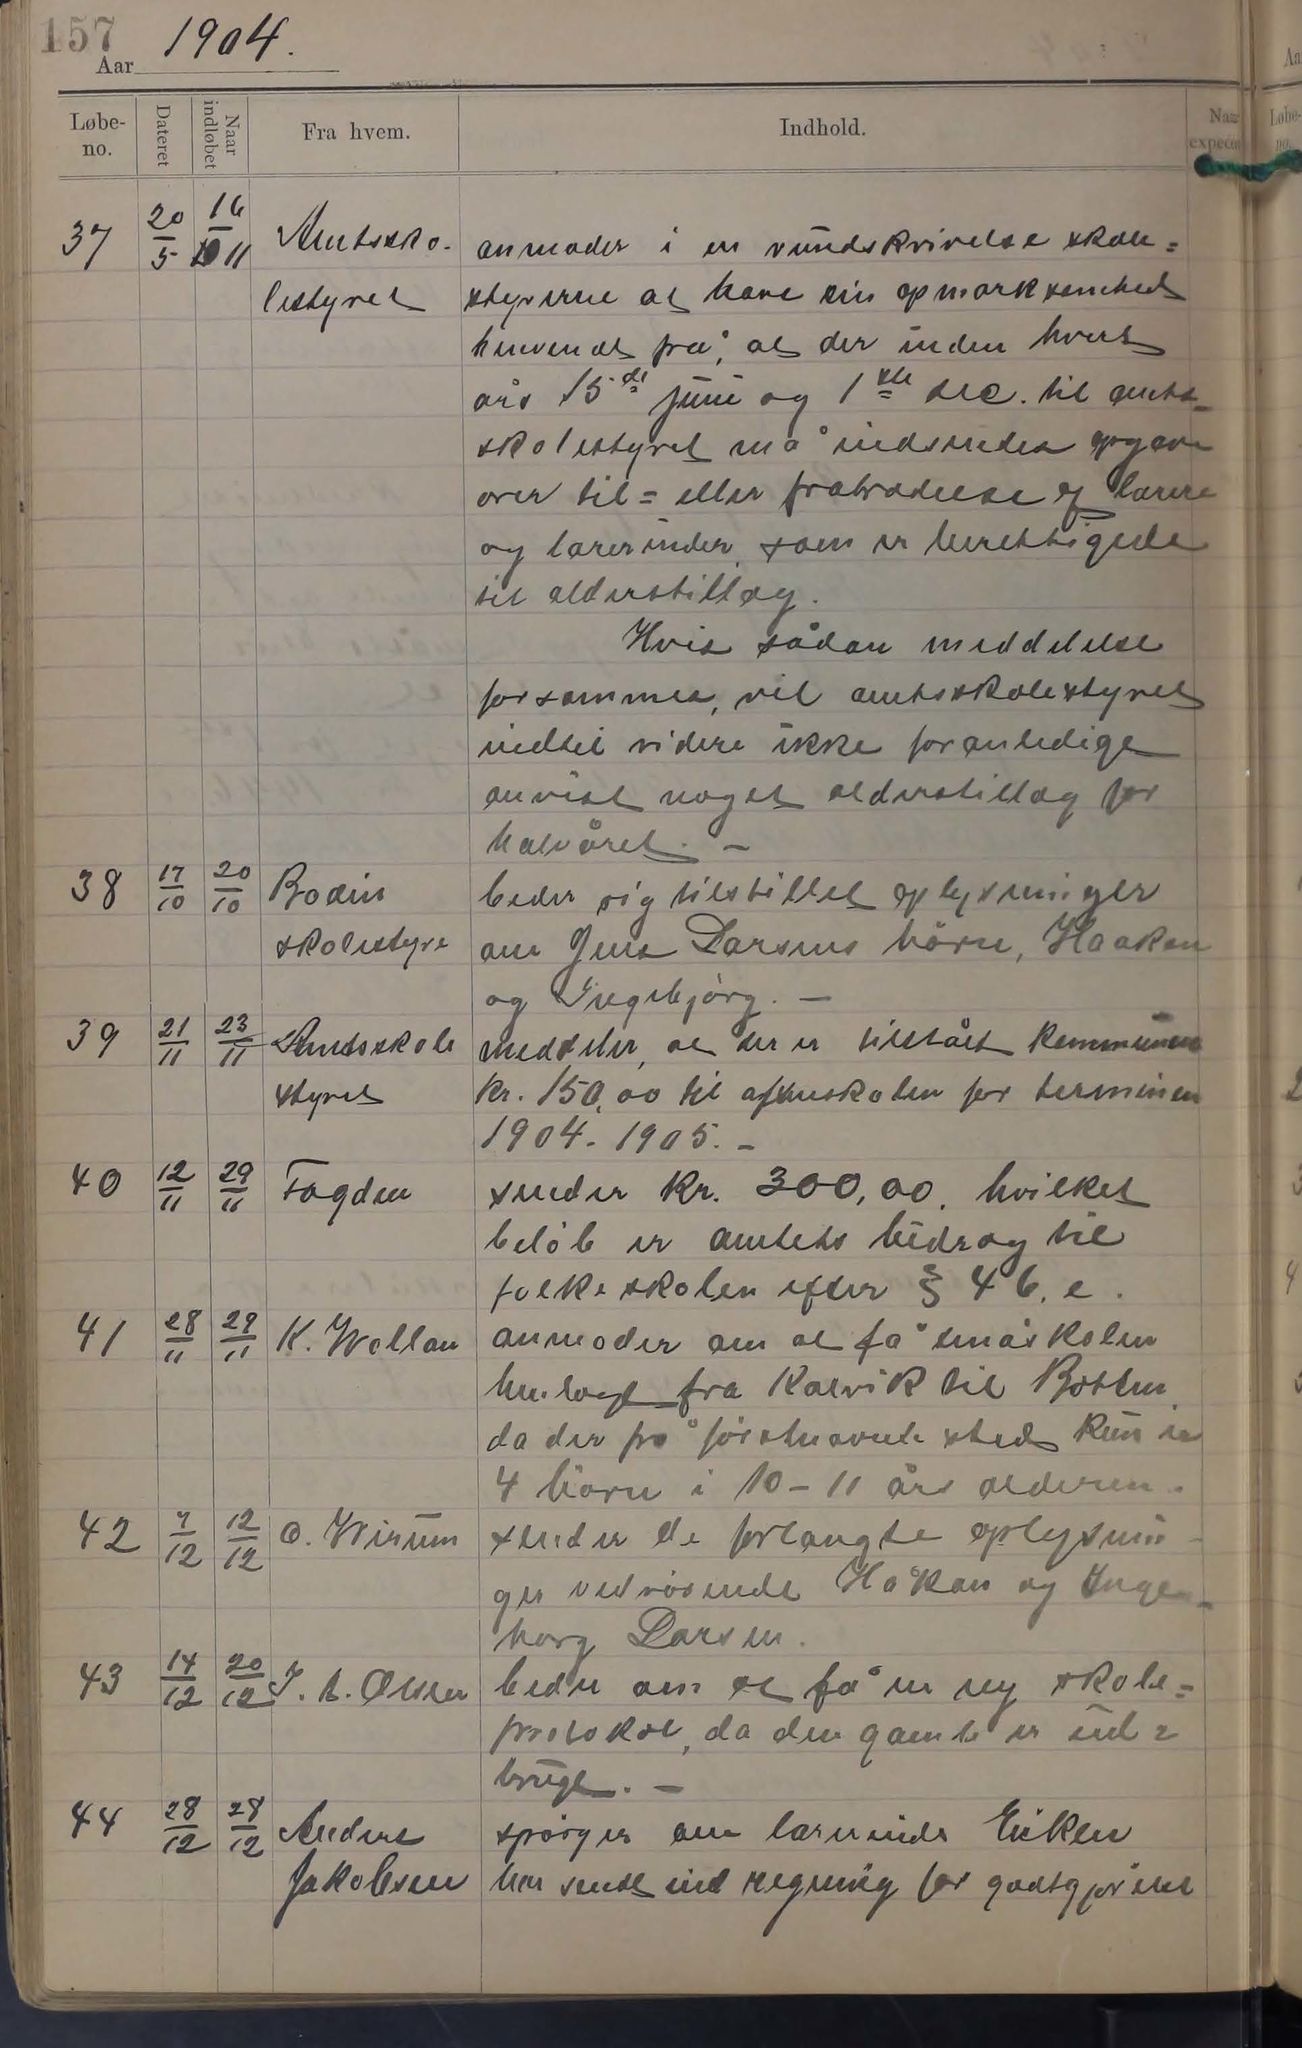 157
Aar 1904.
Løbe-no. Dateret Naar indløbet Fra hvem. Indhold. Naar exped
37 20/5 16/11 Amtssko- anmoder i en rundskrivelse skole=
lestyret styrerne at have sin opmærksomhed
henvendt på, at der inden hvert
års 15de juni og 1ste dec. til amts=
skolestyret må indsendes opgave
over til= eller fratrædelse af lærere
og lærerinder, som er berettigede
til alderstillæg.
Hvis sådan meddelelse
forsømmes, vil amtsskolestyret
indtil videre ikke foranledige
anvist noget alderstillæg for
halvåret. –
38 17/10 20/10 Bodin beder sig tilstillet oplysninger
skolestyre om Jens Larsens børn, Haakon
og Ingebjørg. –
39 21/11 23/11 Amtsskole meddeler, at der er tilstået kommunen
styret kr. 150,00 til aftenskolen for terminen
1904-1905. –
40 12/11 29/11 Fogden sender kr. 300,00, hvilket
beløb er amtets bidrag til
folkeskolen efter § 46. e.
41 28/11 29/11 K. Wollan anmoder om at få småskolen
henlagt fra Kalvik til Botten,
da der på førstnævnte sted kun er
4 børn i 10-11 års alderen.
42 7/12 12/12 O. Wirum sender de forlangte oplysnin-
ger vedrørende Håkon og Inge-
borg Larsen.
43 14/12 20/12 J. L. Olsen beder om at få en ny skole=
protokol, da den gamle er ud=
brugt. –
44 28/12 28/12 Anders spørger om lærerinde Eriksen
Jakobsen har sendt ind regning for godtgjørelse